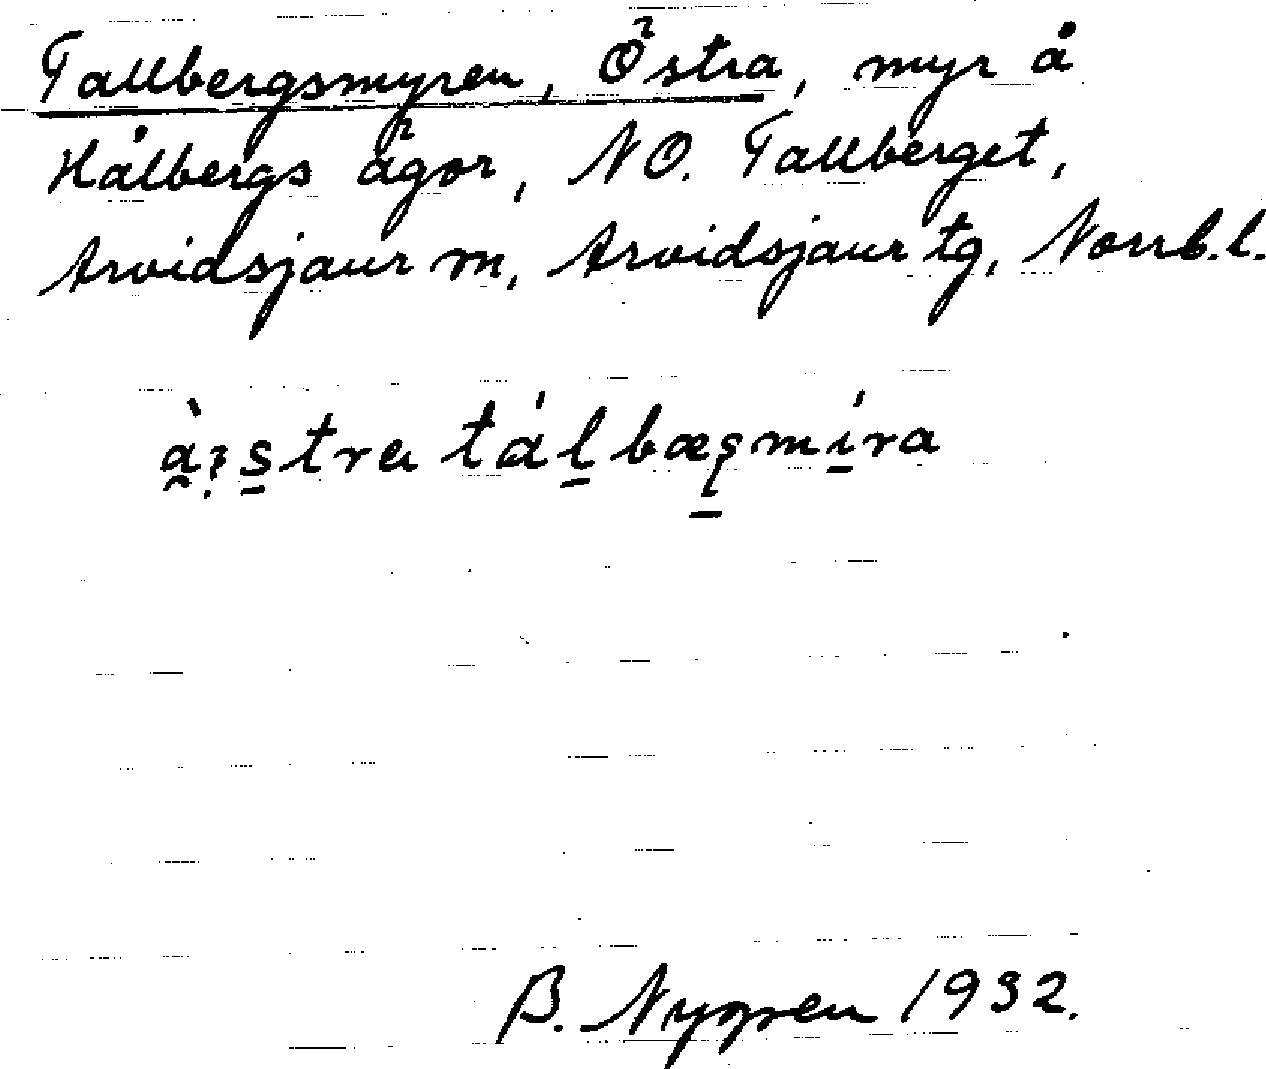 Tallbergsmyren, Östra, myr å
Hålbergs ägor, NO. Tallberget,
Arvidsjaur m, Arvidsjaur tg, Norrb.l.
B. Nygren 1932.